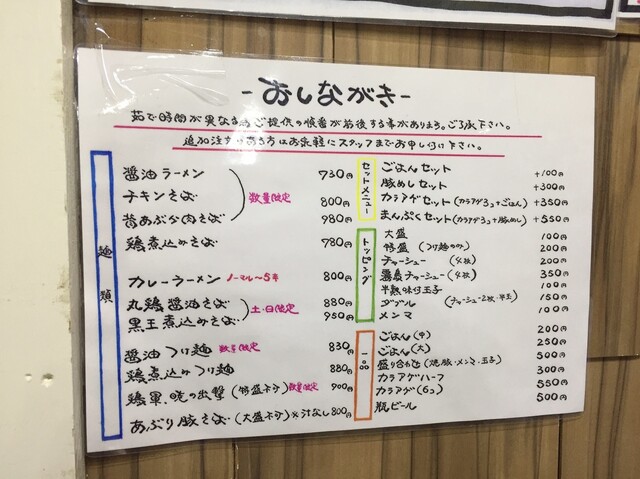 -おしながき-
茹で時間が異なる為ご提供の順番が前後する事があります。ご了承下さい。
追加注文がある方はお気軽にスタッフまでお申し付け下さい。
麺類
醤油ラーメン 730円
チキンそば 800円
昔あぶら肉そば 980円
数量限定
鶏煮込みそば 780円
カレーラーメン ノーマル〜5辛 800円
丸鶏醤油そば 880円
黒王煮込みそば 950円
土・日限定
醤油つけ麺 数量限定 830円
鶏煮込みつけ麺 880円
鶏軍、暁の出撃(特盛不可)数量限定 900円
あぶり豚そば(大盛不可)※汁なし 800円
セットメニュー
ごはんセット +100円
豚めしセット +300円
カラアゲセット(カラアゲ3コ+ごはん) +350円
まんぷくセット(カラアゲ3コ+豚めし) +550円
トッピング
大盛 100円
特盛(つけ麺のみ) 200円
チャーシュー(4枚) 200円
鶏チャーシュー(4枚) 350円
半熟味付玉子 100円
ダブル(チャーシュー2枚・半玉) 150円
メンマ 100円
一品
ごはん(中) 200円
ごはん(大) 250円
盛り合わせ(焼豚・メンマ・玉子) 500円
カラアゲハーフ 300円
カラアゲ(6コ) 550円
瓶ビール 500円